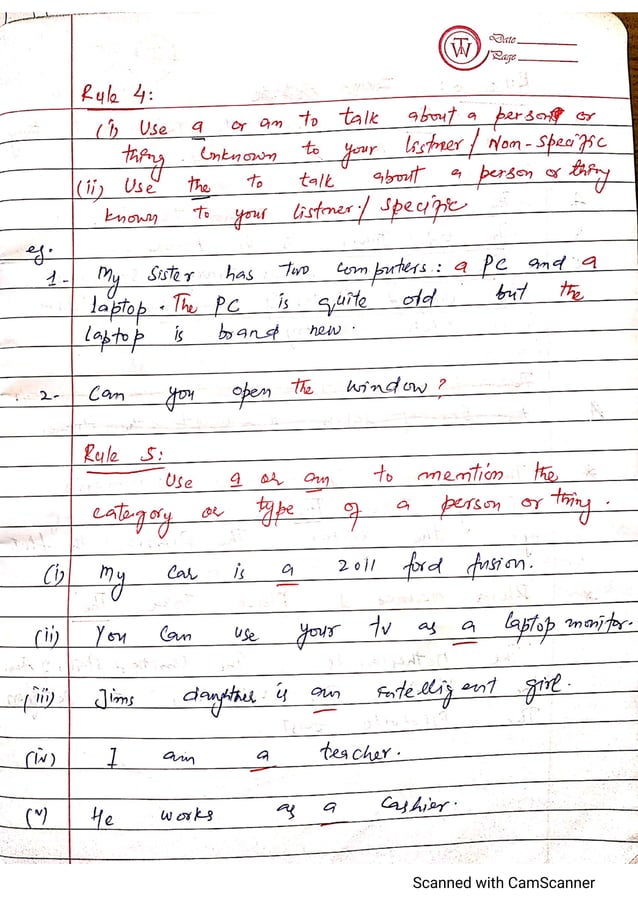 TW
Date
Page
Rule 4:
(i) Use a or an to talk about a person or
thing unknown to your listner / Non-specific
(ii) Use the to talk about a person or thing
known to your listener / specific
eg.
1- My sister has two computers: a PC and a
laptop. The PC is quite old but the
laptop is brand new.
2- Can you open the window?
Rule 5:
Use a or an to mention the
category or type of a person or thing.
(i) My car is a 2011 ford fusion.
(ii) You can use your tv as a laptop monitor.
(iii) Jims daughter is an intelligent girl.
(iv) I am a teacher.
(v) He works as a cashier.
Scanned with CamScanner